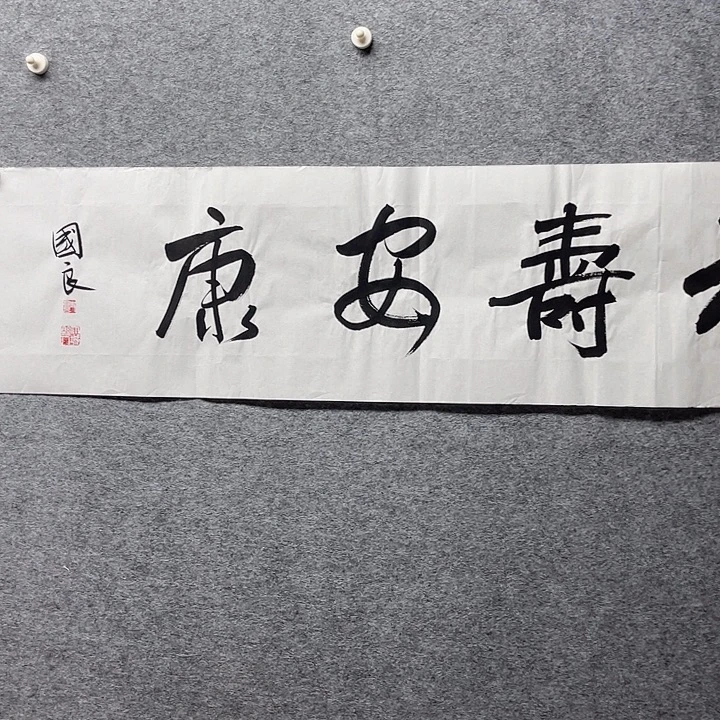 壽安康
國良